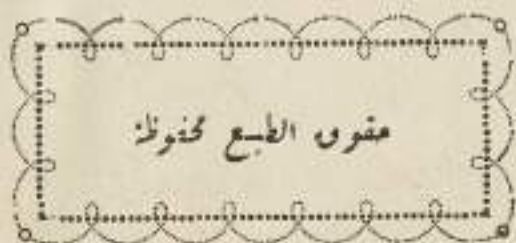 حقوق الطبع محفوظة